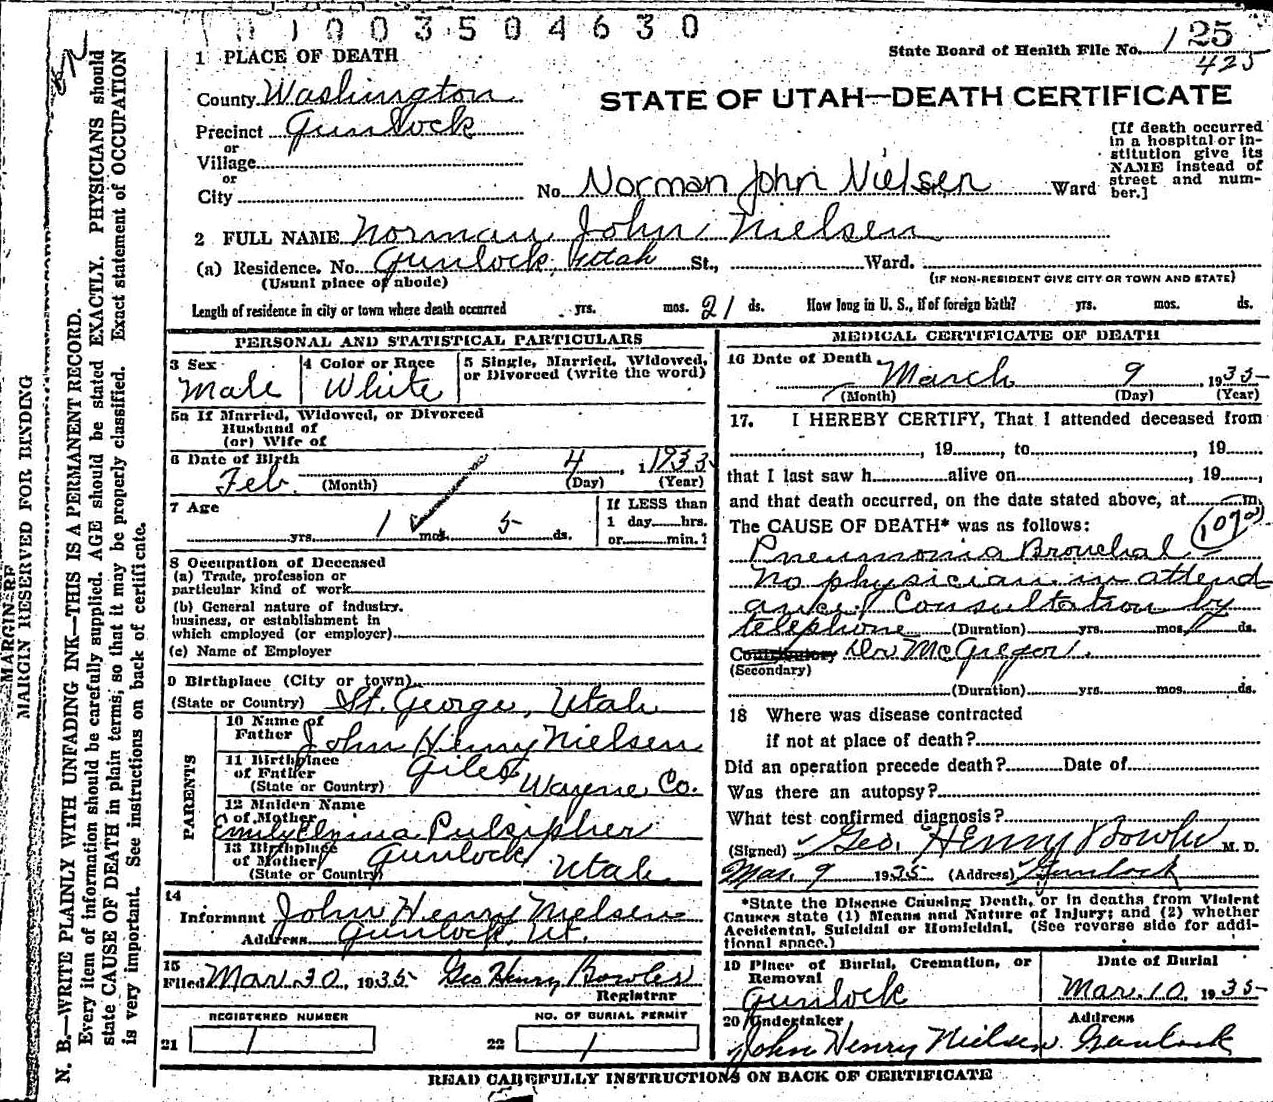 0 1 0 0 3 5 0 4 6 3 0
State Board of Health File No. 125
425
1 PLACE OF DEATH
County Washington
STATE OF UTAH—DEATH CERTIFICATE
Precinct Gunlock
or
Village
or
City
No. Norman John Nielsen Ward
[If death occurred
in a hospital or in-
stitution give its
NAME instead of
street and num-
ber.]
2 FULL NAME Norman John Nielsen
(a) Residence. No. Gunlock, Utah St., Ward.
(Usual place of abode)
(IF NON-RESIDENT GIVE CITY OR TOWN AND STATE)
Length of residence in city or town where death occurred yrs. mos. 21 ds. How long in U. S., if of foreign birth? yrs. mos. ds.
PERSONAL AND STATISTICAL PARTICULARS
3 Sex
Male
4 Color or Race
White
5 Single, Married, Widowed,
or Divorced (write the word)
5a If Married, Widowed, or Divorced
Husband of
(or) Wife of
6 Date of Birth
Feb. 4, 1933
(Month) (Day) (Year)
7 Age
yrs. 1 mos. 5 ds.
If LESS than
1 day hrs.
or min.?
8 Occupation of Deceased
(a) Trade, profession or
particular kind of work
(b) General nature of industry,
business, or establishment in
which employed (or employer)
(c) Name of Employer
9 Birthplace (City or town)
(State or Country) St. George, Utah
PARENTS
10 Name of
Father John Henry Nielsen
11 Birthplace
of Father Giles
(State or Country) Wayne Co.
12 Maiden Name
of Mother
Emily Pulsipher
13 Birthplace
of Mother Gunlock
(State or Country) Utah
14
Informant John Henry Nielsen
Address Gunlock, Ut.
15
Filed Mar. 30, 1935 Geo Henry Bowler
Registrar
REGISTERED NUMBER
21 1
NO. OF BURIAL PERMIT
22 1
MEDICAL CERTIFICATE OF DEATH
16 Date of Death
March 9, 1935
(Month) (Day) (Year)
17. I HEREBY CERTIFY, That I attended deceased from
, 19 , to , 19
that I last saw h alive on , 19 ,
and that death occurred, on the date stated above, at m.
The CAUSE OF DEATH* was as follows:
Pneumonia Bronchal
No physician in attend
ance. Consultation by
telephone (Duration) yrs. mos. ds.
Contributory Dr. McGregor.
(Secondary)
(Duration) yrs. mos. ds.
18 Where was disease contracted
if not at place of death?
Did an operation precede death? Date of
Was there an autopsy?
What test confirmed diagnosis?
(Signed) Geo. Henry Bowler M. D.
Mar. 9 1935 (Address) Gunlock
*State the Disease Causing Death, or in deaths from Violent
Causes state (1) Means and Nature of Injury; and (2) whether
Accidental, Suicidal or Homicidal. (See reverse side for addi-
tional space.)
19 Place of Burial, Cremation, or
Removal
Gunlock
Date of Burial
Mar. 10, 1935
20 Undertaker
John Henry Nielsen
Address
Gunlock
READ CAREFULLY INSTRUCTIONS ON BACK OF CERTIFICATE
MARGIN RESERVED FOR BINDING
N. B.—WRITE PLAINLY WITH UNFADING INK—THIS IS A PERMANENT RECORD.
Every item of information should be carefully supplied. AGE should be stated EXACTLY. PHYSICIANS should
state CAUSE OF DEATH in plain terms, so that it may be properly classified. Exact statement of OCCUPATION
is very important. See instructions on back of certificate.